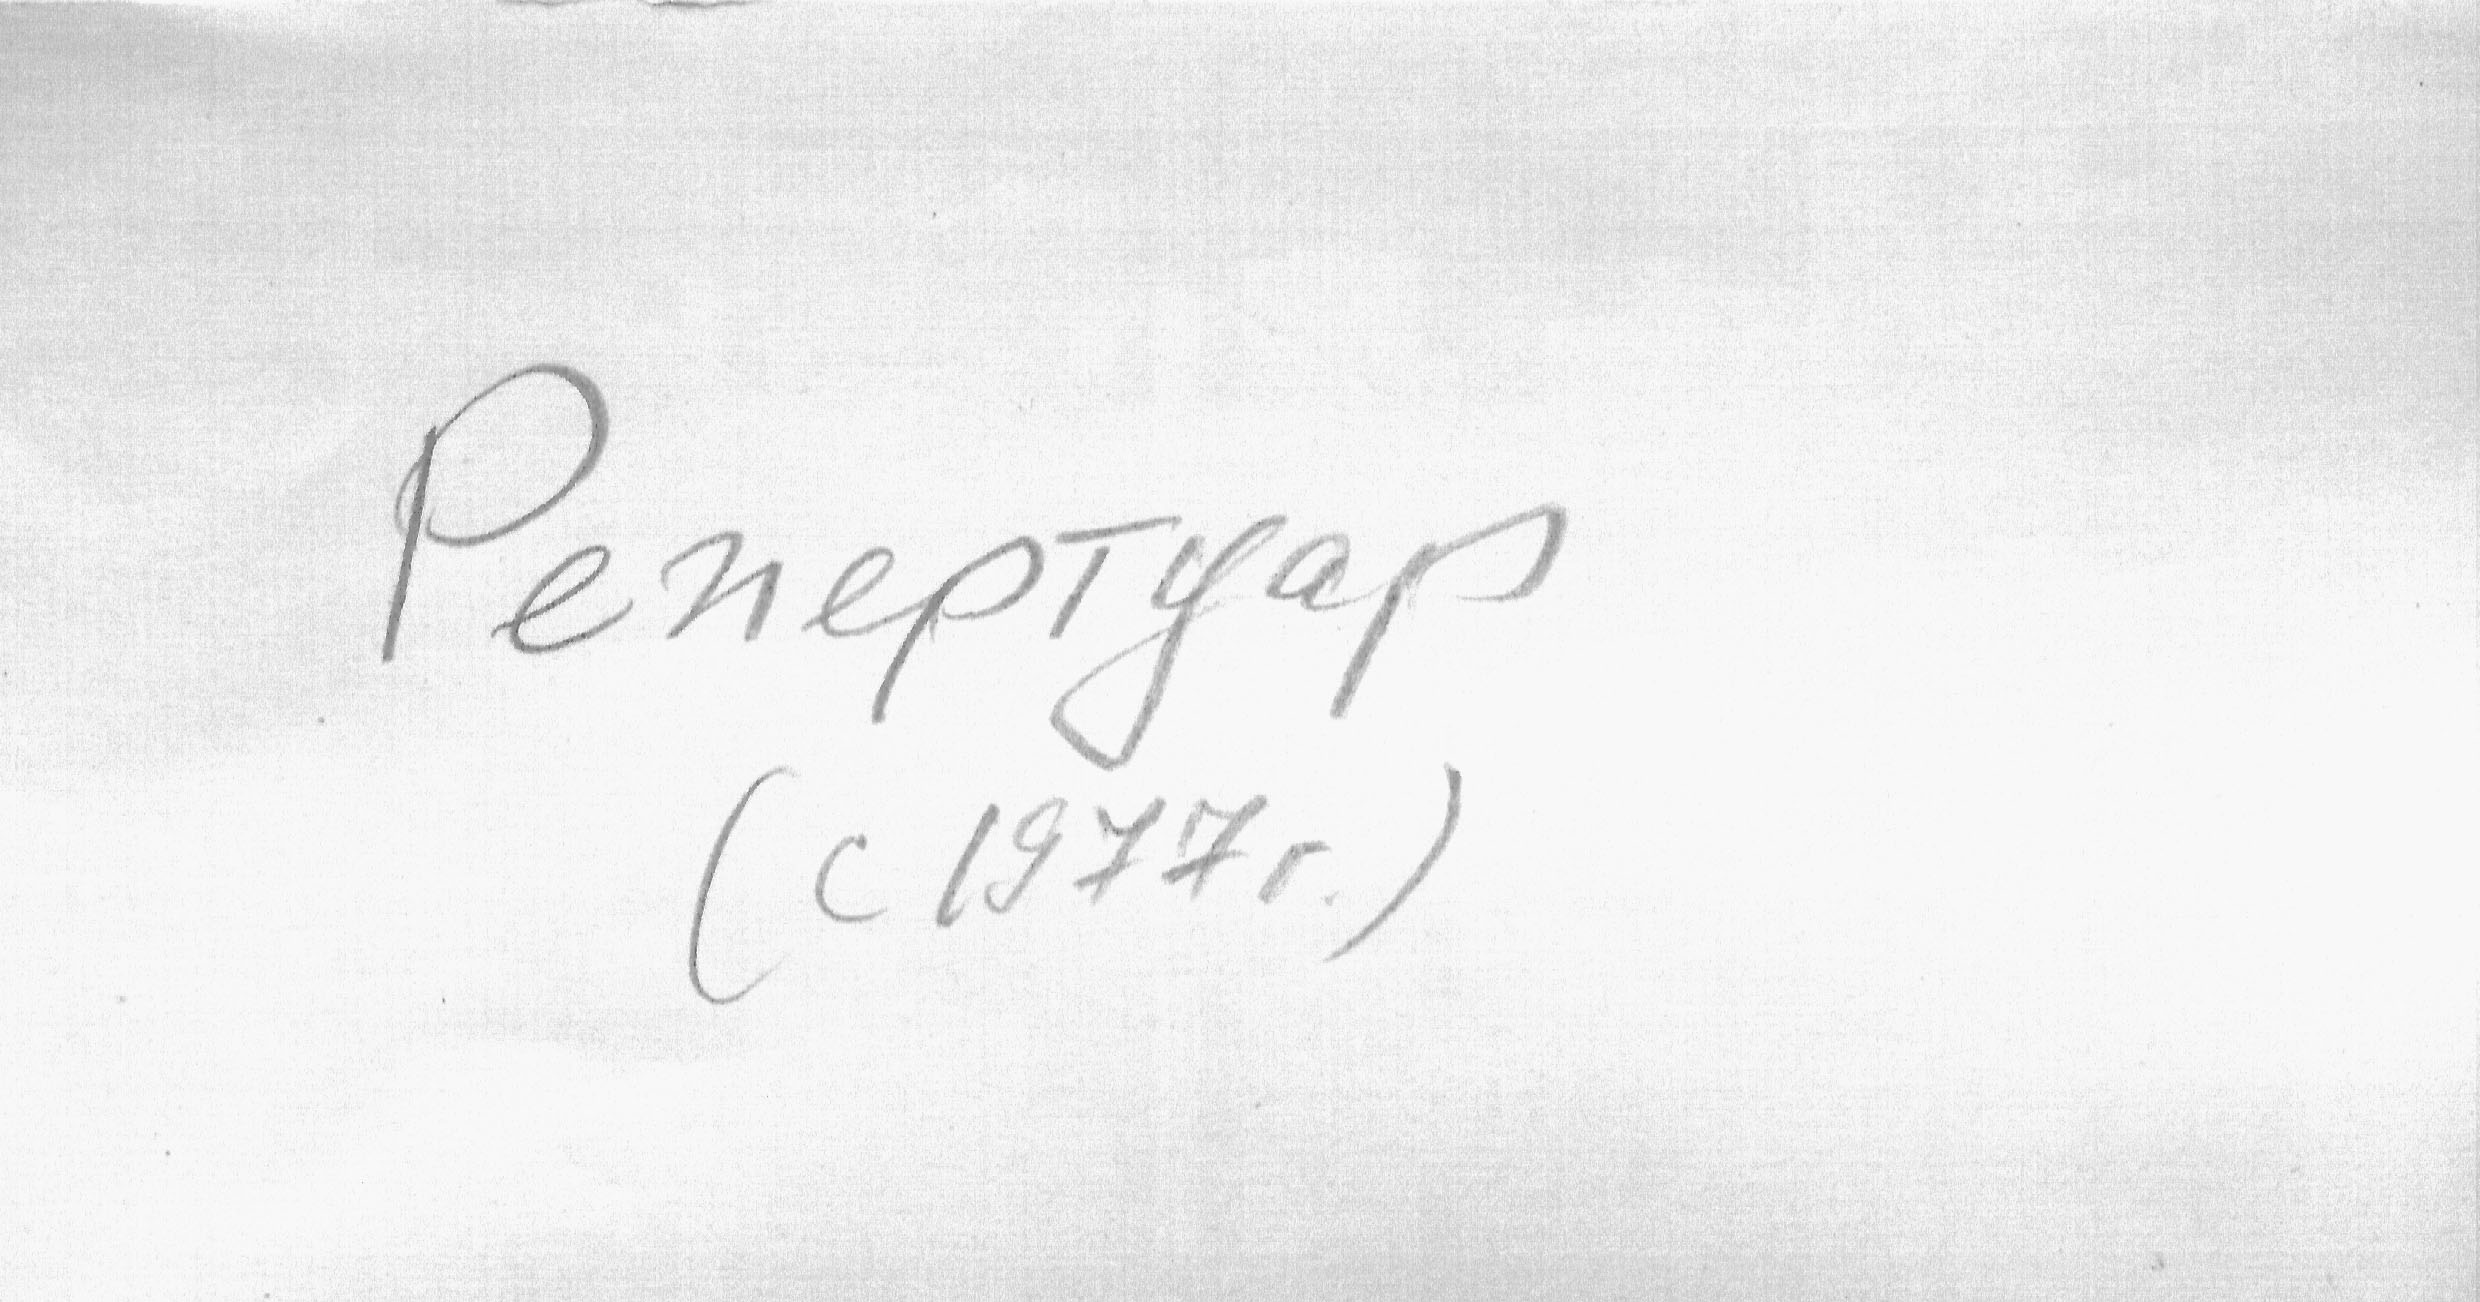 Репертуар
(с 1977г.)